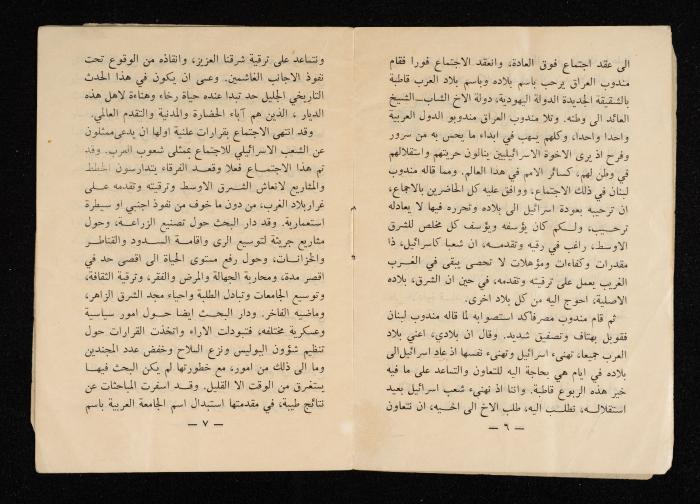 الى عقد اجتماع فوق العادة، وانعقد الاجتماع فورا فقام
مندوب العراق يرحب باسم بلاده وباسم بلاد العرب قاطبة
بالشقيقة الجديدة الدولة اليهودية، دولة الاخ الشاب ــ الشيخ
العائد الى وطنه. وتلا مندوب العراق مندوبو الدول العربية
واحدا واحدا، وكلهم يسهب في ابداء ما يحس به من سرور
وفرح اذ يرى الاخوة الاسرائيليين ينالون حريتهم واستقلالهم
في وطن لهم، كسائر الامم في هذا العالم. ومما قاله مندوب
لبنان في ذلك الاجتماع، ووافق عليه كل الحاضرين بالاجماع،
ان ترحيبه بعودة اسرائيل الى بلاده وتحرره فيها لا يعادله
ترحيب، ولكم كان يؤسفه ويؤسف كل مخلص للشرق
الاوسط، راغب في رقيه وتقدمه، ان شعبا كاسرائيل، ذا
مقدرات وكفاءات ومؤهلات لا تحصى يبقى في الغرب
الغريب يعمل على ترقيته وتقدمه، في حين ان الشرق، بلاده
الاصلية، احوج اليه من كل بلاد اخرى.
ثم قام مندوب مصر فاكد استصوابه لما قاله مندوب لبنان
فقوبل بهتاف وتصفيق شديد. وقال ان بلادي، اعني بلاد
العرب جميعا، تهنىء اسرائيل وتهنىء نفسها اذ عاد اسرائيل الى
بلاده في ايام هي بحاجة اليه للتعاون والتساعد على ما فيه
خير هذه الربوع قاطبة. واننا اذ نهنىء شعب اسرائيل بعيد
استقلاله، نطلب اليه، طلب الاخ الى اخيه، ان نتعاون
— ٦ —
ونتساعد على ترقية شرقنا العزيز، وانقاذه من الوقوع تحت
نفوذ الاجانب الغاشمين. وعسى ان يكون في هذا الحدث
التاريخي الجليل حد تبدا عنده حياة رخاء وهناءة لاهل هذه
الديار، الذين هم آباء الحضارة والمدنية والتقدم العالمي.
وقد انتهى الاجتماع بقرارات علنية اولها ان يدعى ممثلون
عن الشعب الاسرائيلي للاجتماع بممثلى شعوب العرب. وقد
تم هذا الاجتماع فعلا وقعد الفرقاء يتدارسون الخطط
والمشاريع لانعاش الشرق الاوسط وترقيته وتقدمه على
غرار بلاد الغرب، من دون ما خوف من نفوذ اجنبي او سيطرة
استعمارية. وقد دار البحث حول تصنيع الزراعة، وحول
مشاريع جريئة لتوسيع الري واقامة السدود والقناطر
والخزانات، وحول رفع مستوى الحياة الى اقصى حد في
اقصر مدة، ومحاربة الجهالة والمرض والفقر، وترقية الثقافة،
وتوسيع الجامعات وتبادل الطلبة واحياء مجد الشرق الزاهر،
وماضيه الفاخر. ودار البحث ايضا حول امور سياسية
وعسكرية مختلفه، فتبودلات الاراء واتخذت القرارات حول
تنظيم شؤون البوليس ونزع السلاح وخفض عدد المجندين
وما الى ذلك من امور، مع خطورتها لم يكن البحث فيها
يستغرق من الوقت الا القليل. وقد اسفرت المباحثات عن
نتائج طيبة، في مقدمتها استبدال اسم الجامعة العربية باسم
— ٧ —